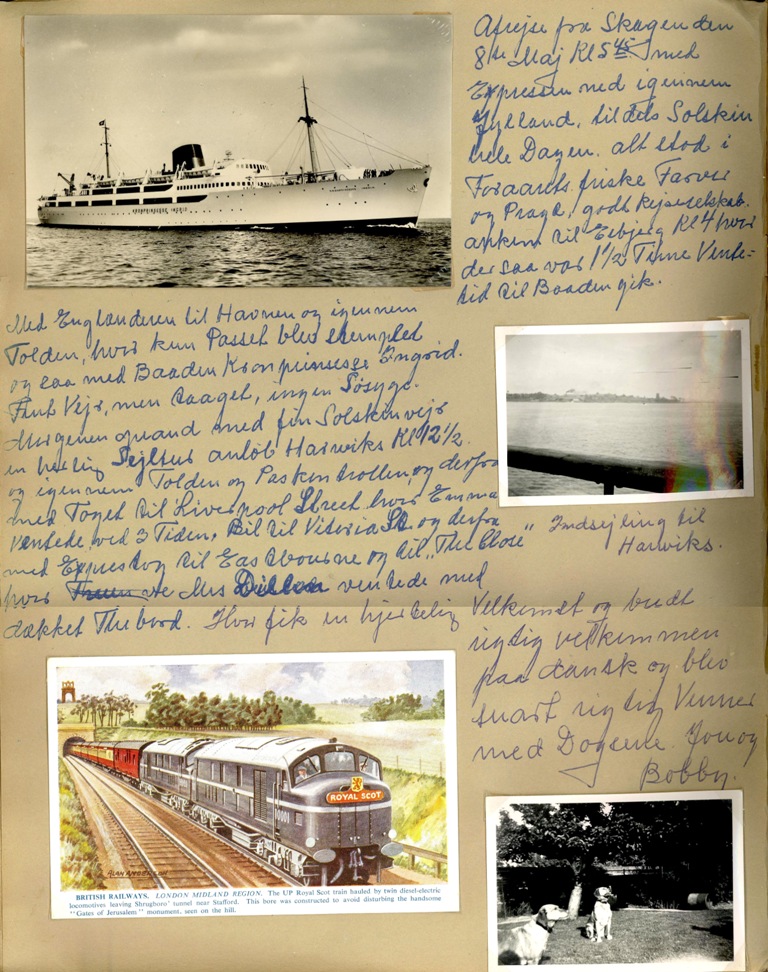 Afrejse fra Skagen den
8de Maj Kl 5 45 med
Expressen ned igennem
Jylland, tildels Solskin
hele Dagen. alt stod i
Foraarets friske Farver
og Pragt, godt Rejseselskab.
ankom til Esbjerg Kl 4 hvor
der saa var 1 1/2 Time Vente-
tid til Baaden gik.
Med Englænderen til Havnen og igennem
Tolden, hvor kun Passet blev stemplet
og saa med Baaden Kronprinsesse Ingrid.
Flint Vejr, men taaget, ingen Søsyge.
Morgenen oprandt med fin Solskinvejr
en herlig Sejltur anløb Harwiks Kl 12 1/2
og igennem Tolden og Paskontrollen, og derfra
med Toget til Liverpool Street hvor Emma
ventede ved 3 Tiden, Bil til Vitoria St. og derfra
med Exprestog til Eastbourne og til "The Close"
hvor Mrs Dillon ventede med
dækket Thebord. Hvor fik en hjertelig
Indsejling til
Harwiks.
Velkomst og budt
rigtig velkommen
paa dansk og blev
snart rigtig Venner
med Dogsene. Jou og
Bobby.
KRONPRINSESSE INGRID
ROYAL SCOT
10001
ALAN ANDERSON
BRITISH RAILWAYS. LONDON MIDLAND REGION. The UP Royal Scot train hauled by twin diesel-electric
locomotives leaving Shrugboro' tunnel near Stafford. This bore was constructed to avoid disturbing the handsome
"Gates of Jerusalem" monument, seen on the hill.